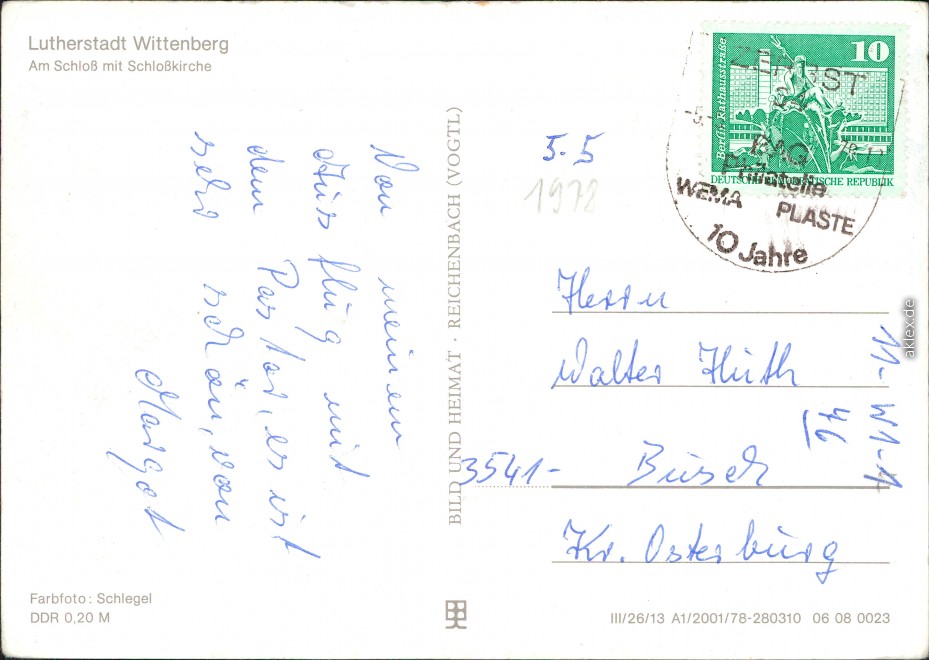 Lutherstadt Wittenberg
Am Schloß mit Schloßkirche
Von meinen
Ausflug mit
dem Pastor, es ist
sehr schön, von
Margot
BILD UND HEIMAT · REICHENBACH (VOGTL)
5.5
1978
10
Berlin, Rathausstraße
DEUTSCHE DEMOKRATISCHE REPUBLIK
ZERBST
Philatelie
WEMA PLASTE
10 Jahre
Herrn
Walter Huth
3541- Büsch
Kr. Osterburg
aklex.de
Farbfoto: Schlegel
DDR 0,20 M
III/26/13 A1/2001/78-280310 06 08 0023